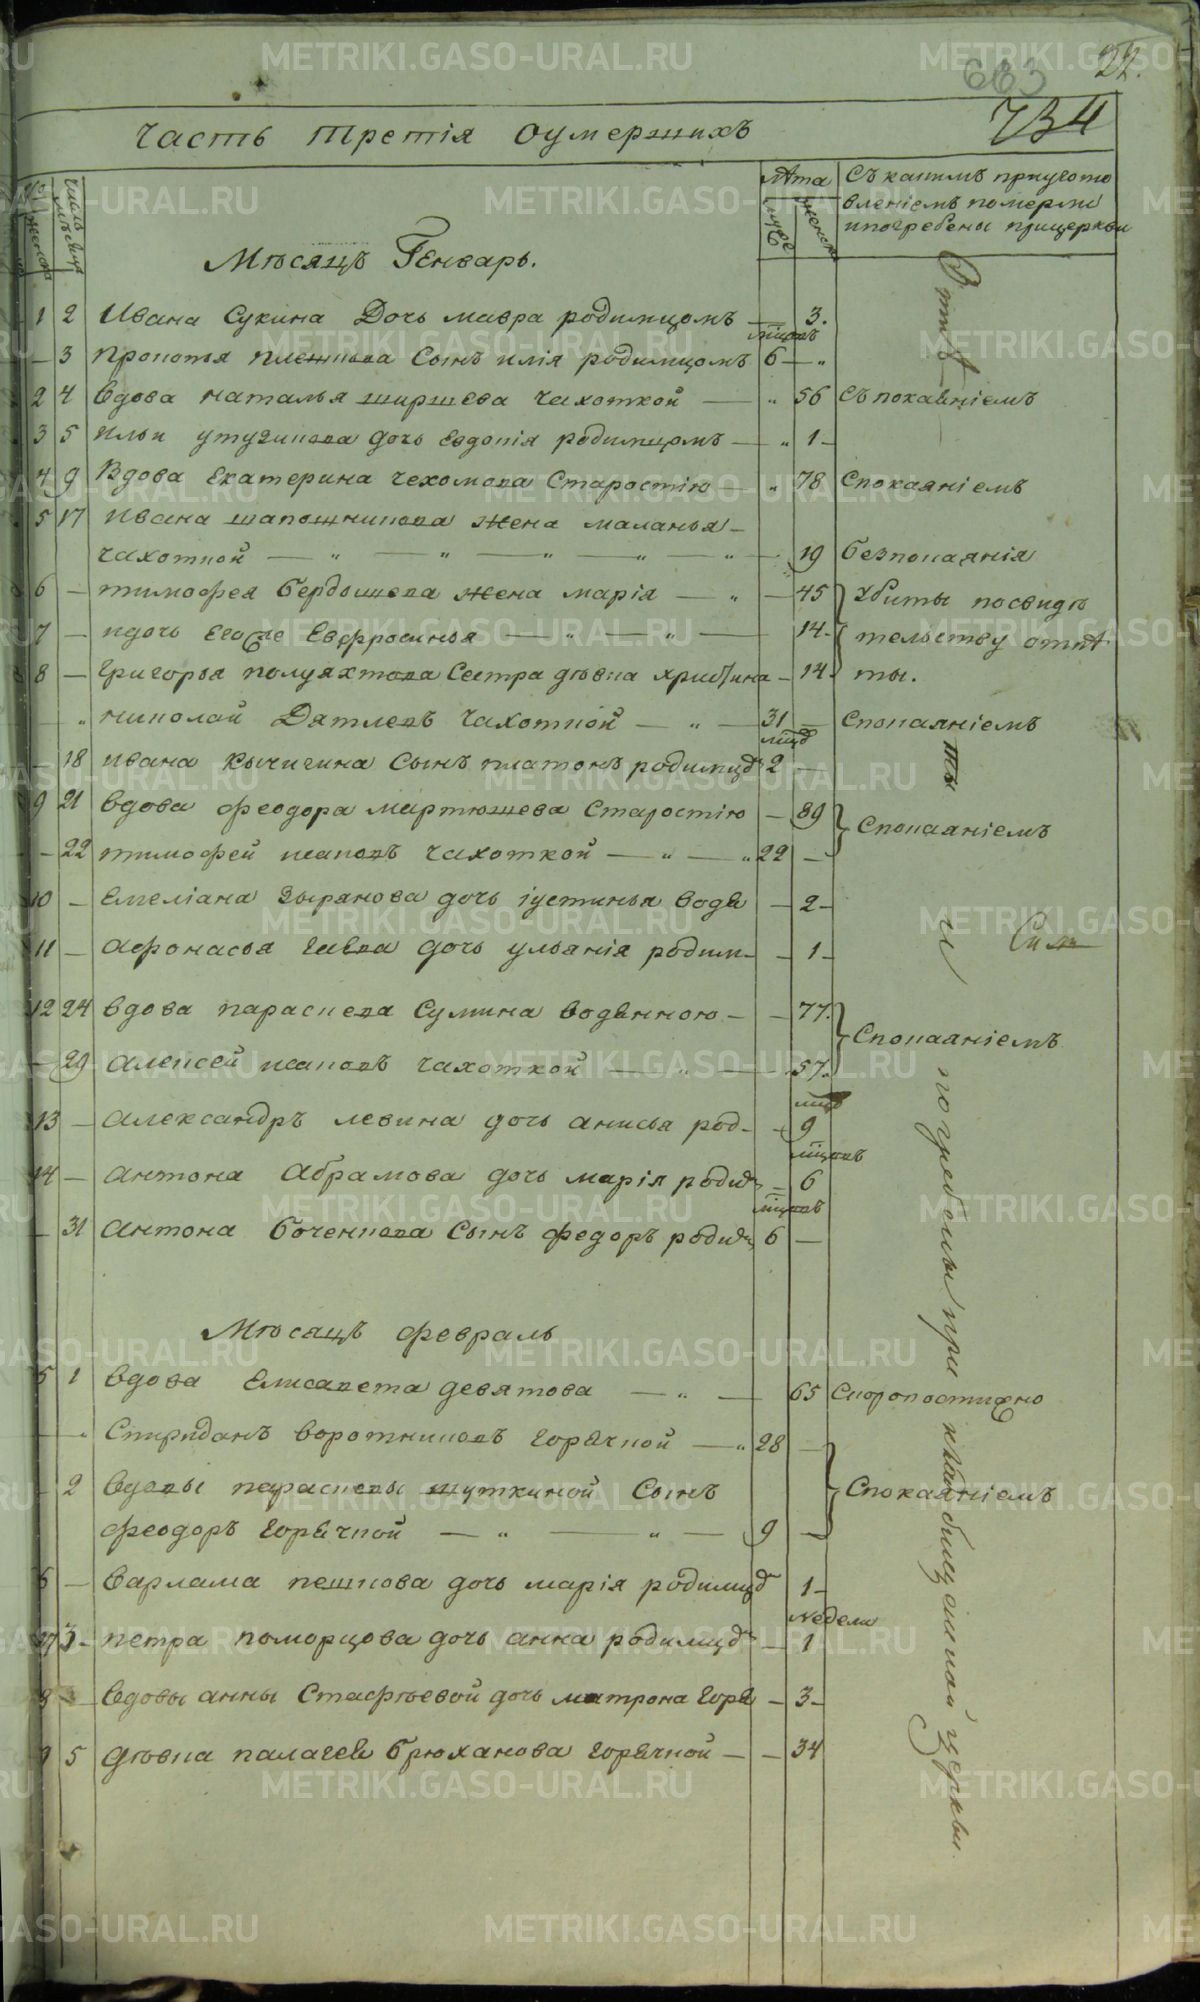 22.
663
734
Часть третія оумершихъ
№
женска
число
мѣсяца
Лѣта
мужс
женска
Съ какимъ пригото
вленіемъ померли
ипогребены прицеркви
Мѣсяцъ Генварь.
1 2 Ивана Сукина Дочь мавра родимцомъ — 3.
мѣцовъ
— 3 прокопья плешкова Сынъ илія родимцомъ 6 — „
2 4 вдова наталья ширшева чахоткой — „ 56 Съ покаяніемъ
3 5 ильи утугинова дочь евдокія родимцомъ — „ 1 —
4 9 Вдова Екатерина чехомова Старостію „ 78 Спокаяніемъ
5 17 Ивана шапошникова жена маланья —
чахоткой — „ — „ — „ — „ — „ — 19 безпокаянія
6 — тимофея бердышева жена марія — „ — 45 Убиты посвидѣ
7 — идочь Его же Евфросинья — „ — „ — 14. тельству отпѣ
8 — григорья полуяхтова Сестра дѣвка христина — 14 ты.
— „ николай Дятлевъ чахоткой — „ — 31 — Спокаяніемъ
мѣцо
— 18 ивана кычигина Сынъ платонъ родимцо 2 —
9 21 вдова феодора мартюшева Старостію — 89
Спокаяніемъ
— 22 тимофей исаковъ чахоткой — „ — „ 22 —
10 — Емеліана зырянова дочь іустинья водя — 2 —
11 — Афонасья гаева дочь ульянія родим — — 1 —
12 24 вдова параскева Сумина водянною — — 77.
Спокаяніемъ
— 29 Алексей исаковъ чахоткой — „ — 57.
13 — Александръ левина дочь анисья род — — 9
мѣцовъ
14 — Антона Абрамова дочь марія родим — 6
мѣцовъ
— 31 Антона боченкова Сынъ федоръ родим 6 —
Мѣсяцъ февраль
5 1 вдова Елисавета девятова — „ — 65 Скоропостижно
— „ Спиридонъ воротниковъ горячкой — „ 28 —
— 2 вдовы параскевы шуткиной Сынъ Спокаяніемъ
феодоръ горячкой — „ — „ — 9 —
6 — варлама пешкова дочь марія родимцо 1 —
недели
17 3 — петра поморцова дочь анна родимцо — 1
8 — вдовы анны Стафѣевой дочь матрона горя — 3 —
9 5 дѣвка палагея брюханова горячкой — — 34
Отпѣ
ты
и погребены при
кладбищенской церкви.